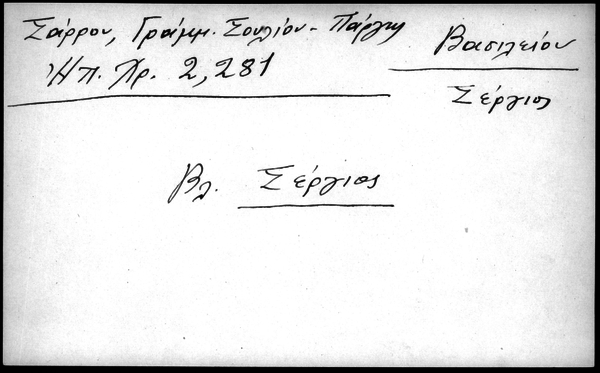 Σάρρου, Γράμμ. Σουλίου - Πάργης
Ἠπ. Χρ. 2,281
Βασιλείου
Σέργιος
Βλ. Σέργιος